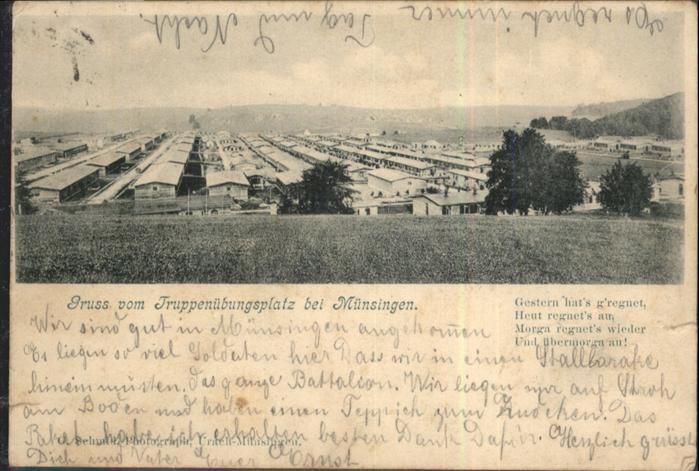 Es regnet immer
Tag und Nacht.
Gruss vom Truppenübungsplatz bei Münsingen.
Gestern hat's g'regnet,
Heut regnet's au,
Morga regnet's wieder
Und übermorga au!
Wir sind gut in Münsingen angekomen
Es liegen so viel Soldaten hier Dass wir in einen Stallbarake
hinein müsten. das ganze Battalion. Wir liegen nur auf Stroh
am Boden und haben einen Teppich zum Zudecken. Das
Paket habe ich erhalten besten Dank Dafür. Herzlich grüsst
Schmid, Photograph, Urach-Münsingen.
Dich und Vater Euer Ernst